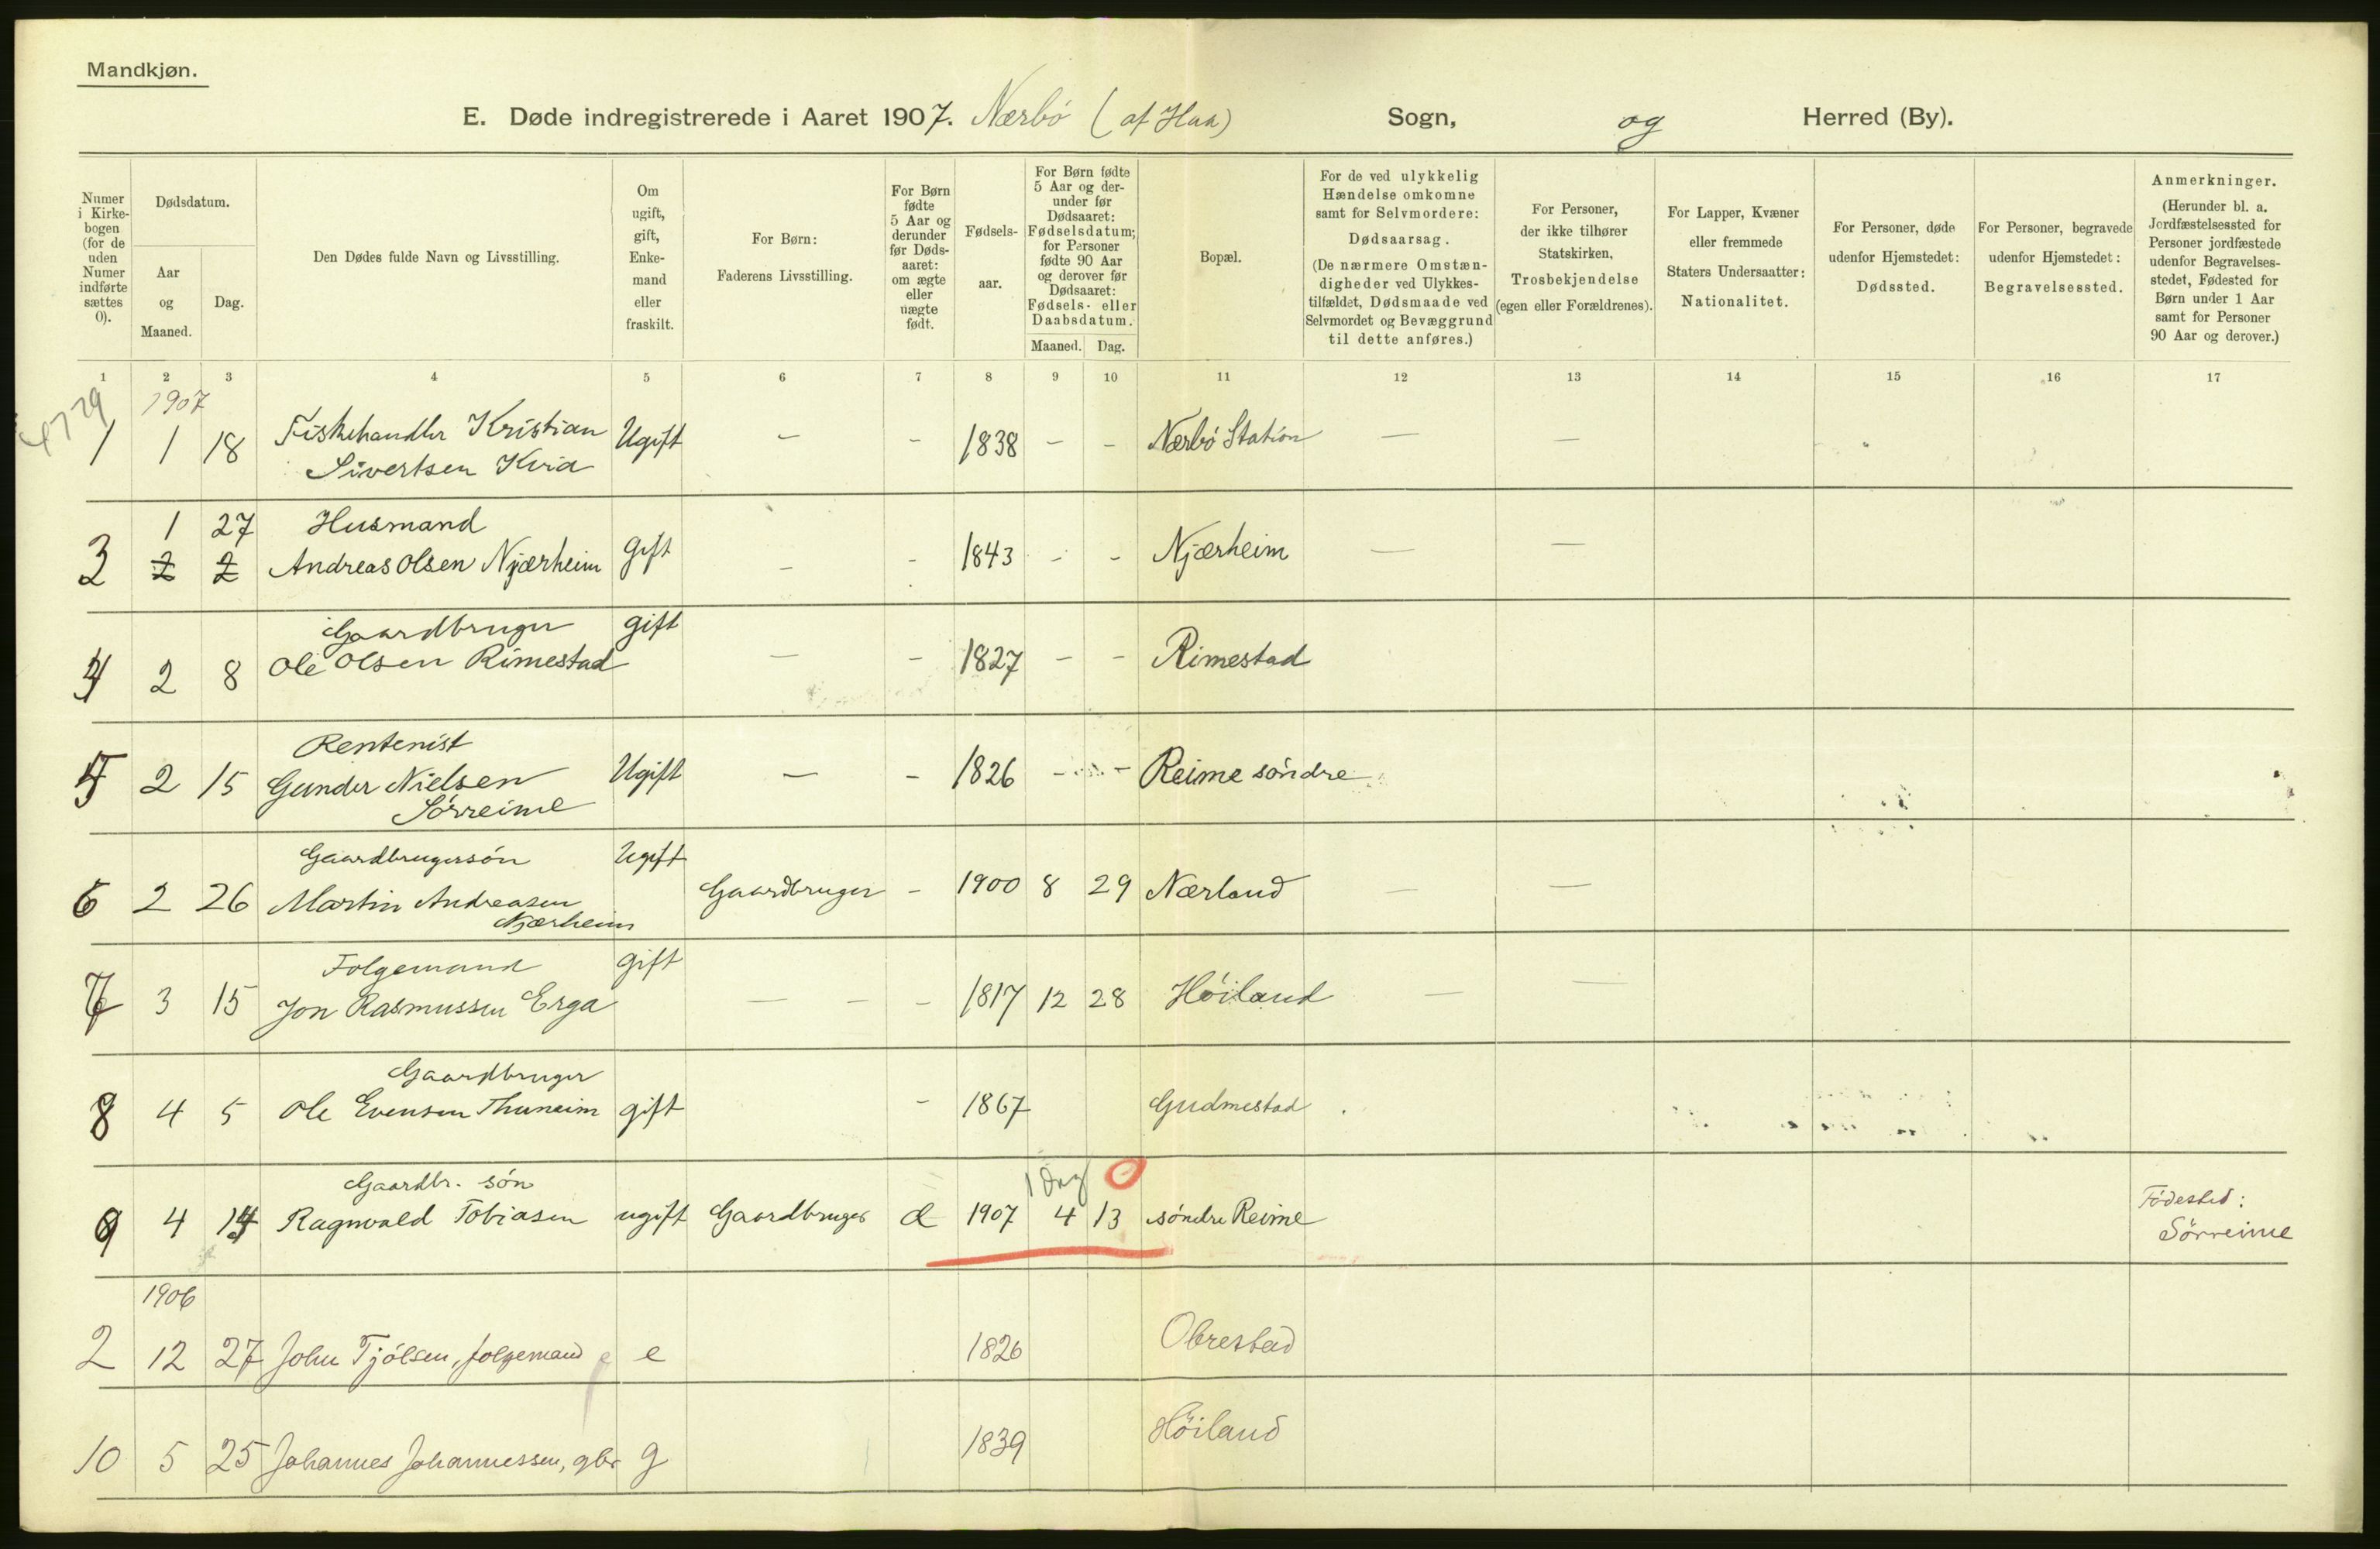 Mandkjøn.
E. Døde indregistrerede i Aaret 1907. Nærbó (af Haa) Sogn, og Herred (By).
Numer i Kirkebogen (for de uden Numer indførte sættes 0).
Dødsdatum.
Aar og Maaned.
Dag.
Den Dødes fulde Navn og Livsstilling.
Om ugift, gift, Enkemand eller fraskilt.
For Børn: Faderens Livsstilling.
For Børn fødte 5 Aar og derunder før Dødsaaret: om ægte eller uægte født.
Fødselsaar.
For Børn fødte 5 Aar og derunder før Dødsaaret: Fødselsdatum; for Personer fødte 90 Aar og derover før Dødsaaret: Fødsels- eller Daabsdatum.
Maaned. Dag.
Bopæl.
For de ved ulykkelig Hændelse omkomne samt for Selvmordere: Dødsaarsag. (De nærmere Omstændigheder ved Ulykkestilfældet, Dødsmaade ved Selvmordet og Bevæggrund til dette anføres.)
For Personer, der ikke tilhører Statskirken, Trosbekjendelse (egen eller Forældrenes).
For Lapper, Kvæner eller fremmede Staters Undersaatter: Nationalitet.
For Personer, døde udenfor Hjemstedet: Dødssted.
For Personer, begravede udenfor Hjemstedet: Begravelsessted.
Anmerkninger. (Herunder bl. a. Jordfæstelsessted for Personer jordfæstede udenfor Begravelsesstedet, Fødested for Børn under 1 Aar samt for Personer 90 Aar og derover.)
1 2 3 4 5 6 7 8 9 10 11 12 13 14 15 16 17
1907
1 1 18 Fiskehandler Kristian Ugift - - 1838 - - Nærbó Station — —
Sivertsen Kvia
1 27 Husmand
3 2 2 Andreas Olsen Njærheim Gift - - 1843 - - Njærheim — —
Gaardbruger gift
4 2 8 Ole Olsen Rimestad — - 1827 - - Rimestad
Rentenist
5 2 15 Gunder Nielsen Ugift — - 1826 - - Reime söndre
Sörreime
Gaardbrugersón Ugift
6 2 26 Martin Andreasen Gaardbruger - 1900 8 29 Nærland — —
Njærheim
Folgemand gift
7 3 15 Jon Rasmussen Erga — - - 1817 12 28 Höiland — —
Gaardbruger
8 4 5 Ole Evensen Thuneim gift - 1867 Gudmestad
Gaardbr. són 1 Dag 0
9 4 14 Ragnvald Tobiasen ugift Gaardbruger 1907 4 13 söndre Reime Födested:
Sörreime
1906
2 12 27 John Tjólsen, folgemand e 1826 Obrestad
10 5 25 Johannes Johannessen, gbr g 1839 Höiland